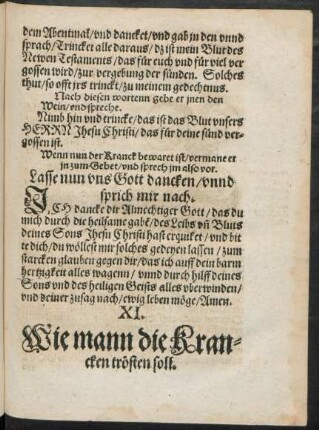 dem Abentmal/vnd dancket/vnd gab jn den vnnd
sprach/Trincket alle daraus/dz ist mein Blut des
Newen Testaments/das für euch vnd für viel ver
gossen wird/zur vergebung der sünden. Solches
thut/so offt jrs trinckt/zu meinem gedechtnus.
Nach diesen wortenn gebe er jnen den
Wein/end spreche.
Nimb hin vnd trincke/das ist das Blut vnsers
HERRN Jhesu Christi/das für deine sünd ver-
gossen ist.
Wenn nun der Kranck bewaret ist/vermane er
jn zum Gebet/vnd sprech jm also vor.
Lasse nun vns Gott dancken/vnnd
sprich mir nach.
ICH dancke dir Almechtiger Gott/das du
mich durch die heilsame gabe/des Leibs vñ Bluts
deines Sons Jhesu Christi hast erquiket/vnd bit
te dich/du wöllest mir solches gedeyen lassen/zum
starcken glauben gegen dir/das ich auff dein barm
hertzigkeit alles wagenn/vnnd durch hilff deines
Sons vnd des heiligen Geists alles vberwinden/
vnd deiner zusag nach/ewig leben möge/Amen.
XI.
Wie mann die Kran-
cken trösten soll.